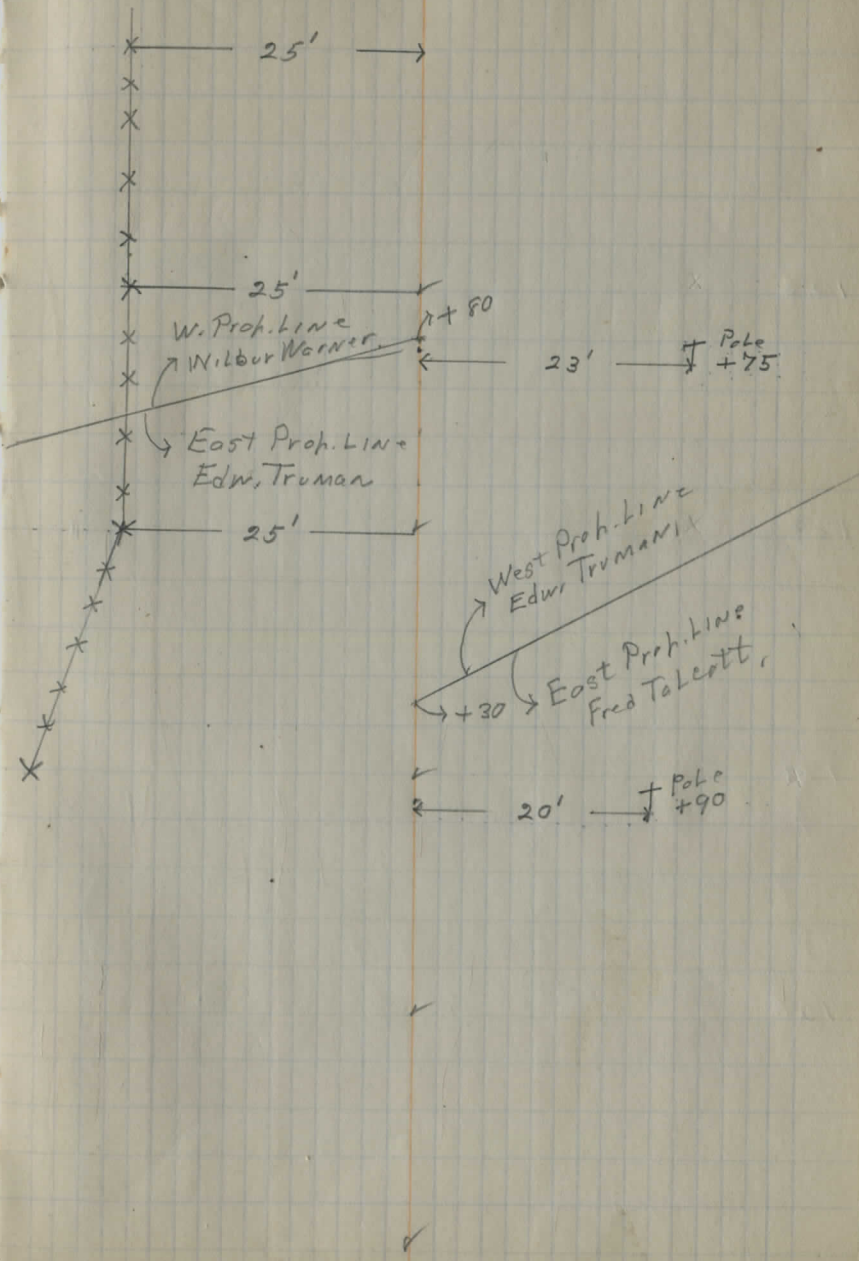 25'
25'
+80
W. Prop. Line
Wilbur Warner.
23'
Pole
+75
East Prop. Line
Edw. Truman
25'
West Prop. Line
Edw. Truman
East Prop. Line
Fred Talcott.
+30
20'
Pole
+90